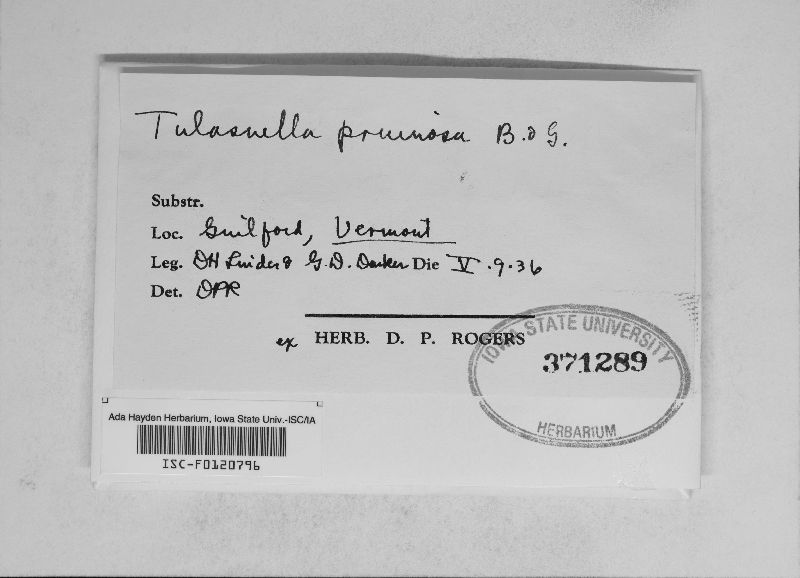 Tulasnella pruinosa B. & G.
Substr.
Loc. Guilford, Vermont
Leg. DH Linder & G.D. Darker Die V.9.36
Det. DPR
ex HERB. D. P. ROGERS
IOWA STATE UNIVERSITY
371289
HERBARIUM
Ada Hayden Herbarium, Iowa State Univ.-ISC/IA
ISC-F0120796